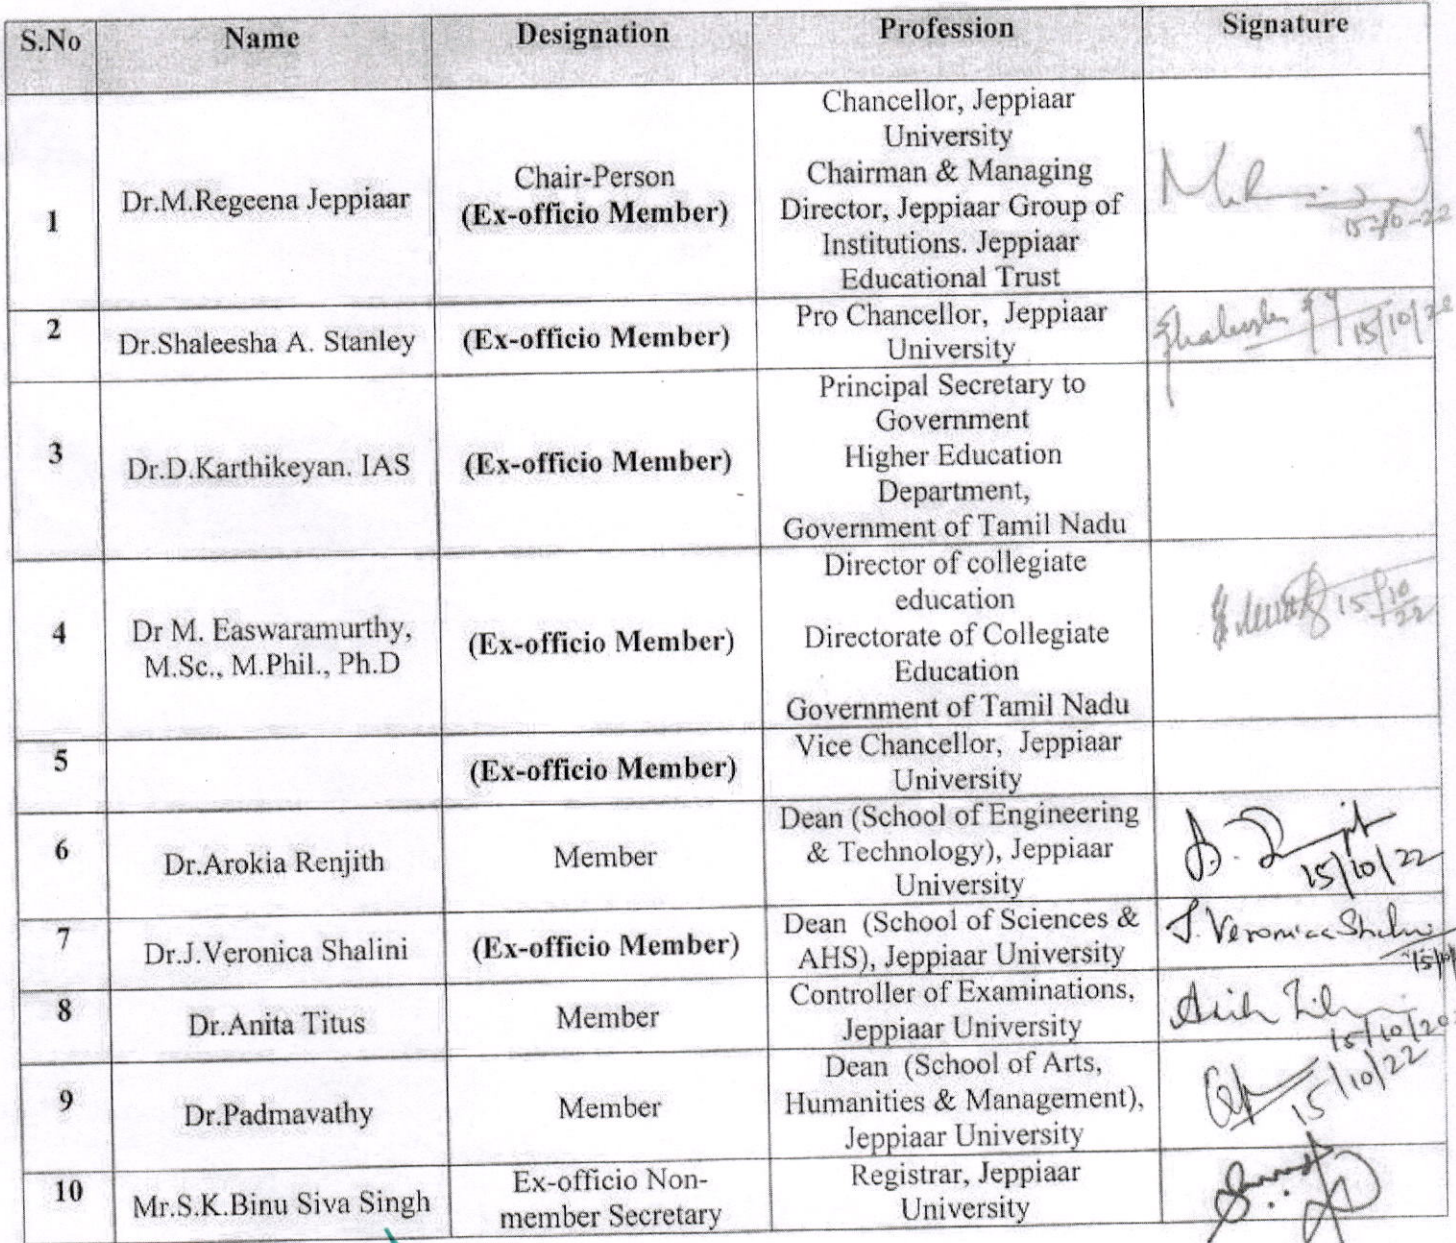 S.No Name Designation Profession Signature
1 Dr.M.Regeena Jeppiaar Chair-Person
(Ex-officio Member) Chancellor, Jeppiaar
University
Chairman & Managing
Director, Jeppiaar Group of
Institutions. Jeppiaar
Educational Trust
15-10-22
2 Dr.Shaleesha A. Stanley (Ex-officio Member) Pro Chancellor, Jeppiaar
University
15/10/22
3 Dr.D.Karthikeyan. IAS (Ex-officio Member) Principal Secretary to
Government
Higher Education
Department,
Government of Tamil Nadu
4 Dr M. Easwaramurthy,
M.Sc., M.Phil., Ph.D (Ex-officio Member) Director of collegiate
education
Directorate of Collegiate
Education
Government of Tamil Nadu
15/10/22
5 (Ex-officio Member) Vice Chancellor, Jeppiaar
University
6 Dr.Arokia Renjith Member Dean (School of Engineering
& Technology), Jeppiaar
University
15/10/22
7 Dr.J.Veronica Shalini (Ex-officio Member) Dean (School of Sciences &
AHS), Jeppiaar University
J. Veronica Shalini
8 Dr.Anita Titus Member Controller of Examinations,
Jeppiaar University
15/10/20
9 Dr.Padmavathy Member Dean (School of Arts,
Humanities & Management),
Jeppiaar University
15/10/22
10 Mr.S.K.Binu Siva Singh Ex-officio Non-
member Secretary Registrar, Jeppiaar
University